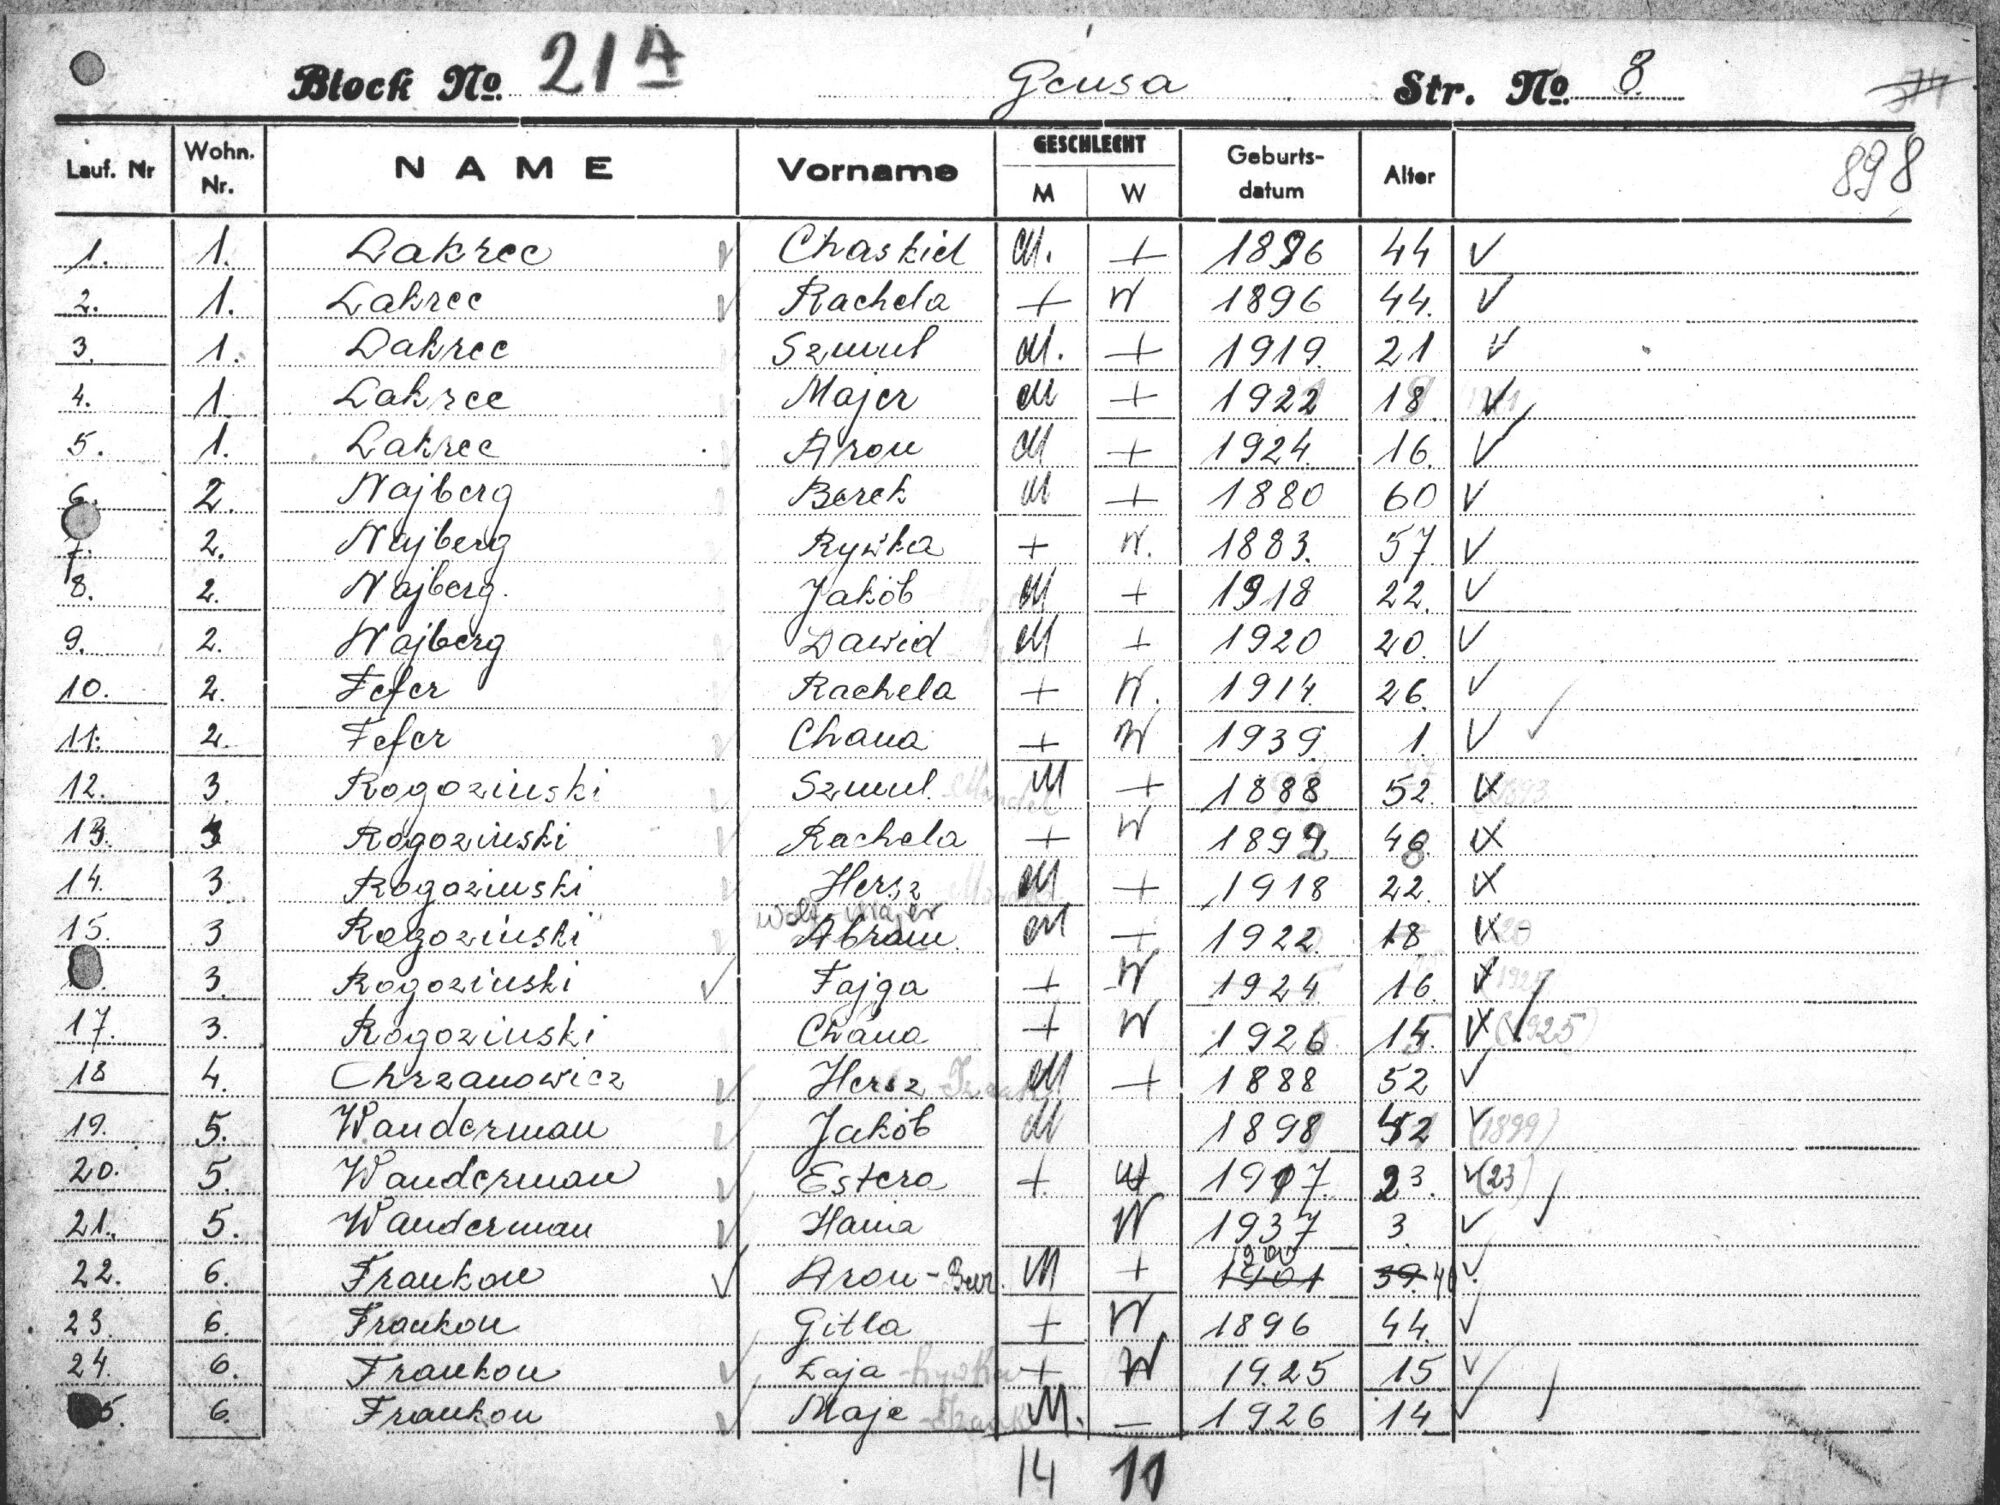 Block No. 21A Gensa Str. No. 8
898
Lauf. Nr Wohn. Nr. NAME Vorname GESCHLECHT M W Geburts-datum Alter
1. 1. Lakrec Chaskiel M. + 1896 44 ✓
2. 1. Lakrec Rachela + W 1896 44. ✓
3. 1. Lakrec Szmul M. + 1919. 21 ✓
4. 1. Lakrec Majer M + 1922 18 ✓
5. 1. Lakrec Aron M + 1924. 16. ✓
6. 2. Najberg Berek M + 1880 60 ✓
7. 2. Najberg Rywka + W. 1883. 57 ✓
8. 2. Najberg. Jakób M + 1918 22. ✓
9. 2. Najberg Dawid M + 1920 20. ✓
10. 2. Fefer Rachela + W. 1914. 26. ✓
11. 2. Fefer Chana + W 1939. 1. ✓
12. 3. Rogozinski Szmul. Mandel M + 1888 52. (1893
13. 3 Rogozinski Rachela + W 1892 48
14. 3. Rogozinski Hersz M + 1918 22.
15. 3 Rogozinski Wolf-Majer Abram. M + 1922. 18 20
3. Rogozinski ✓ Fajga + W 1924 16.
17. 3. Rogozinski Chana + W 1926 15. (1925)
18 4. Chrzanowicz ✓ Hersz M + 1888 52 ✓
19. 5. Wanderman Jakób M 1898 42 ✓ (1899)
20. 5. Wanderman ✓ Estera + W 1917. 23. ✓ (23)
21. 5. Wanderman ✓ Hania W 1937 3. ✓
22. 6. Frankon ✓ Aron-Ber M + 1901 1900 39. 40 ✓
23. 6. Frankon Gitla + W 1896 44. ✓
24. 6. Frankon ✓ Łaja Rywka + W 1925 15 ✓
5. 6. Frankon ✓ Maje M. — 1926 14 ✓
14 11